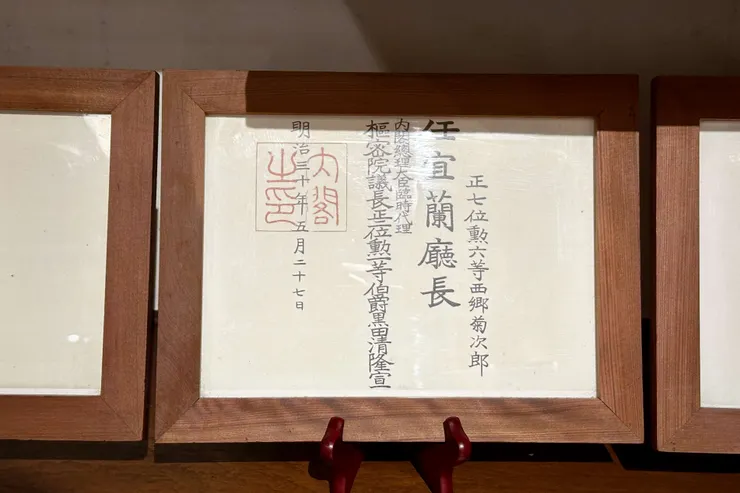 正七位勲六等西郷菊次郎
任宜蘭廳長
内閣總理大臣臨時代理
樞密院議長正二位勲一等伯爵黒田清隆宣
明治三十年五月二十七日
内閣之印